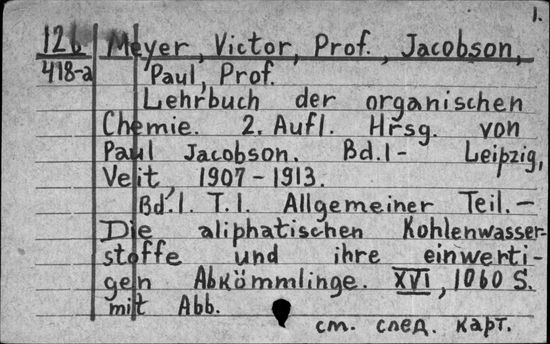 1.
12b Meyer, Victor, Prof., Jacobson,
418-a Paul, Prof.
Lehrbuch der organischen
Chemie. 2. Aufl. Hrsg. von
Paul Jacobson. Bd.1- Leipzig,
Veit, 1907-1913.
Bd.1. T.1. Allgemeiner Teil.-
Die aliphatischen Kohlenwasser-
stoffe und ihre einwerti-
gen Abkömmlinge. XVI, 1060 S.
mit Abb.
см. след. карт.